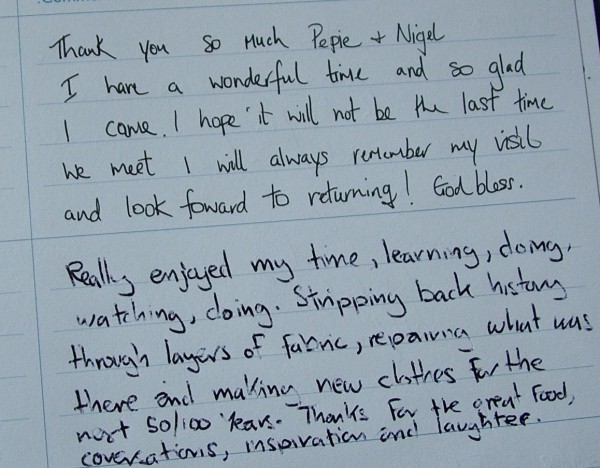 Thank you so much Pepie + Nigel
I have a wonderful time and so glad
I came. I hope it will not be the last time
we meet I will always remember my visit
and look foward to returning! God bless.
Really enjoyed my time, learning, doing,
watching, doing. Stripping back history
through layers of fabric, repairing what was
there and making new clothes for the
next 50/100 years. Thanks for the great food,
coversations, inspiration and laughter.